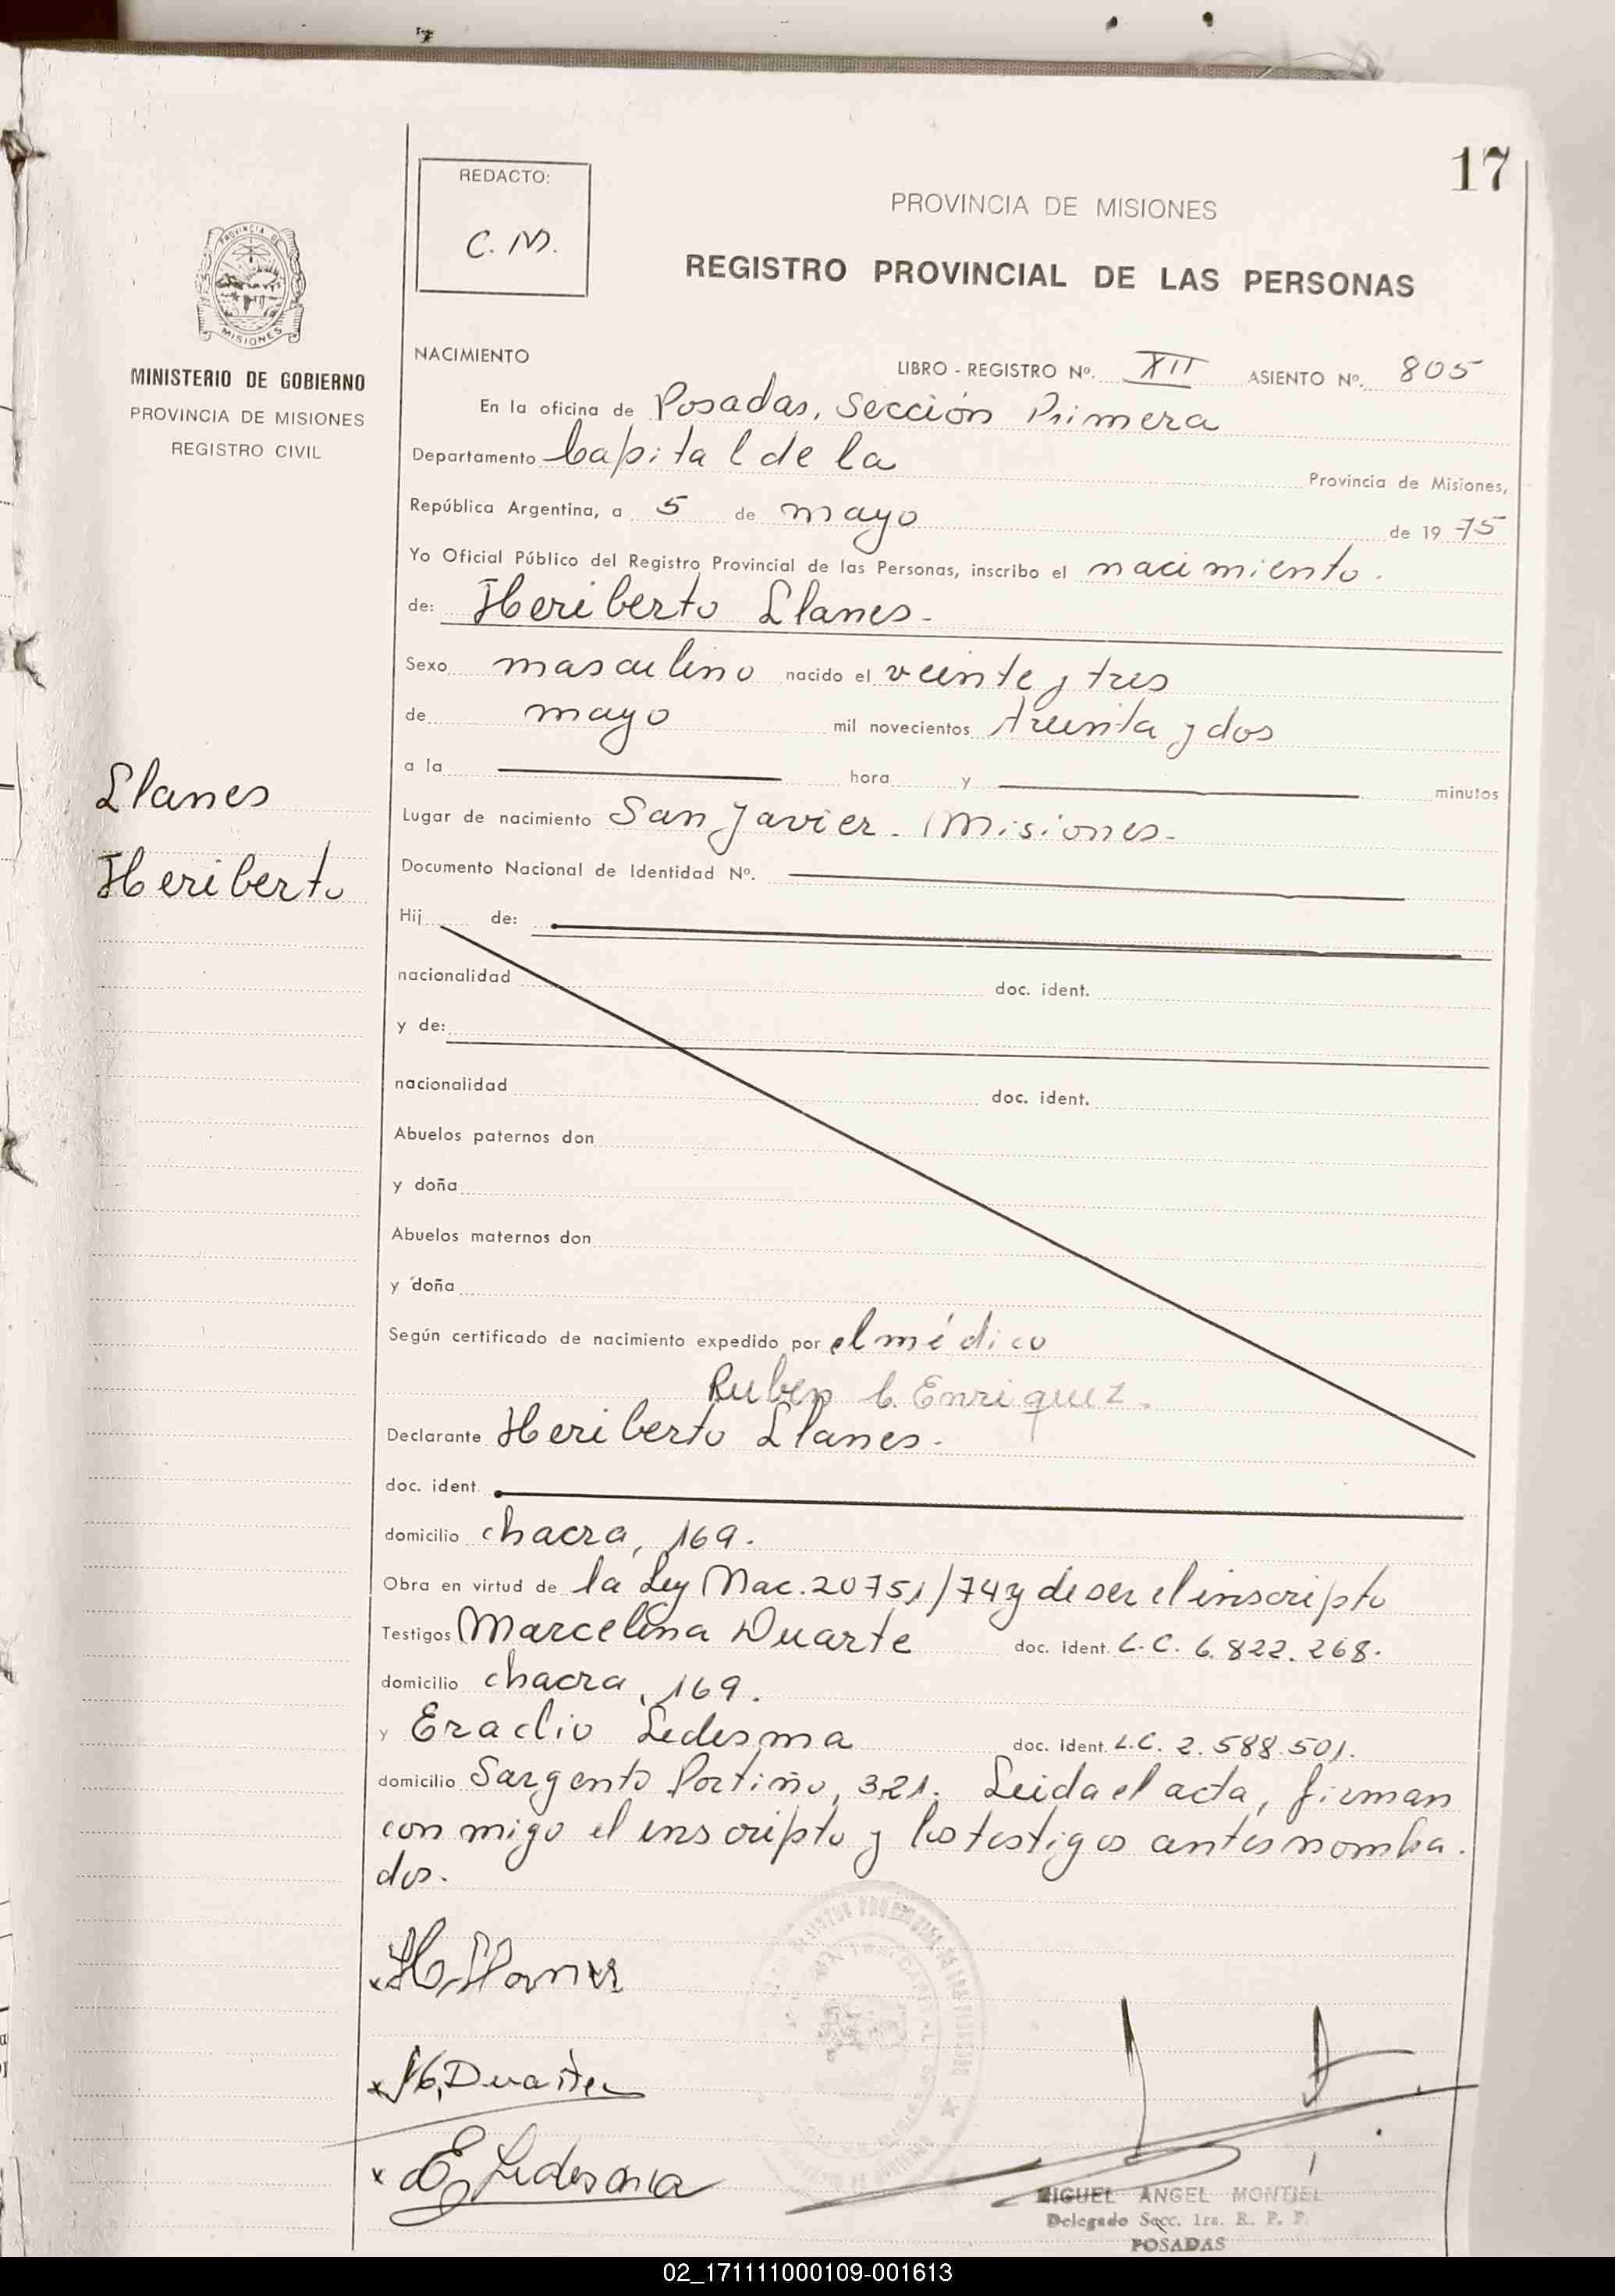 17
REDACTO:
C. M.
PROVINCIA DE MISIONES
REGISTRO PROVINCIAL DE LAS PERSONAS
PROVINCIA DE
MISIONES
MINISTERIO DE GOBIERNO
PROVINCIA DE MISIONES
REGISTRO CIVIL
Llanes
Heriberto
NACIMIENTO
LIBRO - REGISTRO Nº. XII ASIENTO Nº. 805
En la oficina de Posadas, Sección Primera
Departamento Capital de la Provincia de Misiones,
República Argentina, a 5 de mayo de 1975
Yo Oficial Público del Registro Provincial de las Personas, inscribo el nacimiento.
de: Heriberto Llanes.
Sexo masculino nacido el veinte y tres
de mayo mil novecientos treinta y dos
a la hora y minutos
Lugar de nacimiento San Javier. Misiones.
Documento Nacional de Identidad Nº.
Hij de:
nacionalidad doc. ident.
y de:
nacionalidad doc. ident.
Abuelos paternos don
y doña
Abuelos maternos don
y doña
Según certificado de nacimiento expedido por el médico
Ruben C. Enriquez.
Declarante Heriberto Llanes.
doc. ident.
domicilio chacra, 169.
Obra en virtud de la Ley Nac. 20751/74 y de ser el inscripto
Testigos Marcelina Duarte doc. ident. L.C. 6.822.268.
domicilio chacra, 169.
y Eraclio Ledesma doc. ident. L.C. 2.588.501.
domicilio Sargento Portiño, 321. Leida el acta, firman
con migo el inscripto y los testigos antes nombra.
dos.
x H. Llanes
x M. Duarte
x E Ledesma
MIGUEL ANGEL MONTIEL
Delegado Secc. 1ra. R. P. P.
POSADAS
02_171111000109-001613